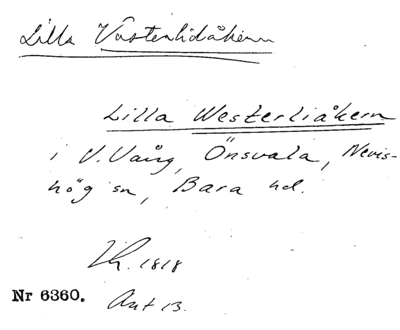 Lilla Västerlidåkern
Lilla Westerliåkern
i V. Vång, Önsvala, Nevis-
hög sn, Bara hd.
Kh. 1818
Nr 6360. Akt 13.